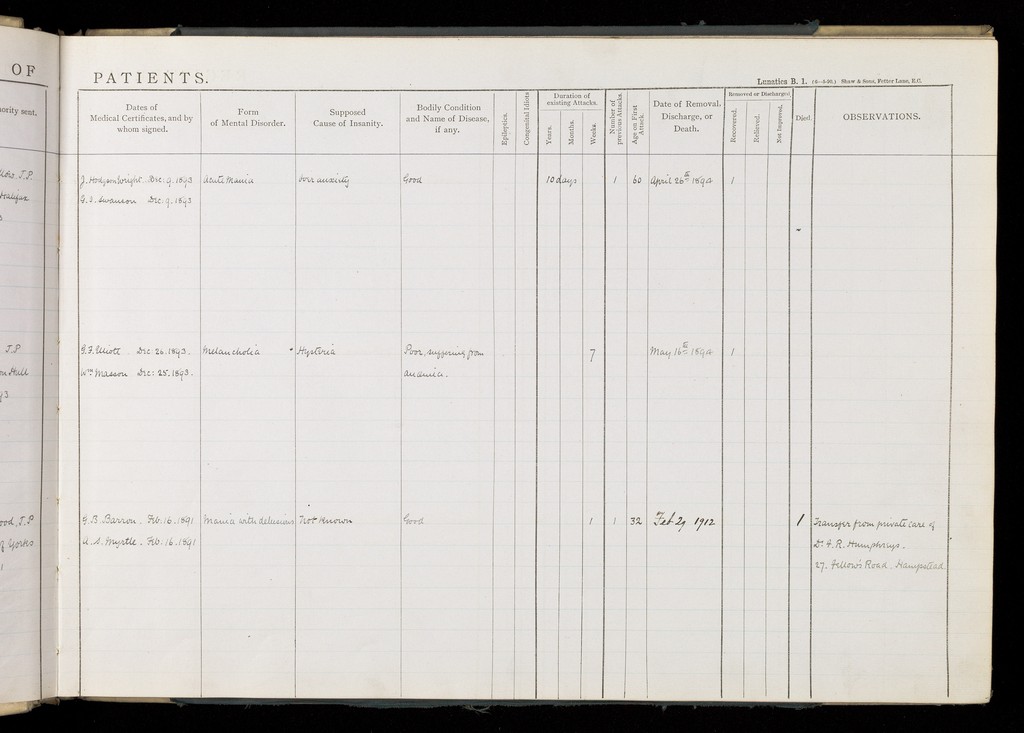 OF
PATIENTS.
Lunatics B. 1. Shaw & Sons, Fetter Lane, E.C.
ority sent.
Dates of
Medical Certificates, and by
whom signed.
Form
of Mental Disorder.
Supposed
Cause of Insanity.
Bodily Condition
and Name of Disease,
if any.
Epileptics.
Congenital Idiots
Duration of
existing Attacks.
Years.
Months.
Weeks.
Number of
previous Attacks.
Age on First
Attack.
Date of Removal,
Discharge, or
Death.
Removed or Discharged.
Recovered.
Relieved.
Not Improved.
Died.
OBSERVATIONS.
J.P.
Halifax
J. Hodgson Wright. Dec: 9. 1893 Acute Mania Over anxiety Good 10 days 1 60 April 26th 1894 1
G. I. Swanson Dec: 9. 1893
J.P
Hull
93
G. F. Elliott Dec: 26. 1893. Melancholia Hysteria Poor, suffering from 7 May 16th 1894 1
Wm Masson Dec: 25. 1893. anaemia.
ood, J.P
of Yorks
G. B. Barron. Feb. 16. 1891 Mania with delusions Not Known Good 1 1 32 Feb 29 1912 1 Transfer from private care of
A. S. Myrtle. Feb. 16. 1891 Dr. F. R. Humphreys.
27. Fellow's Road. Hampstead